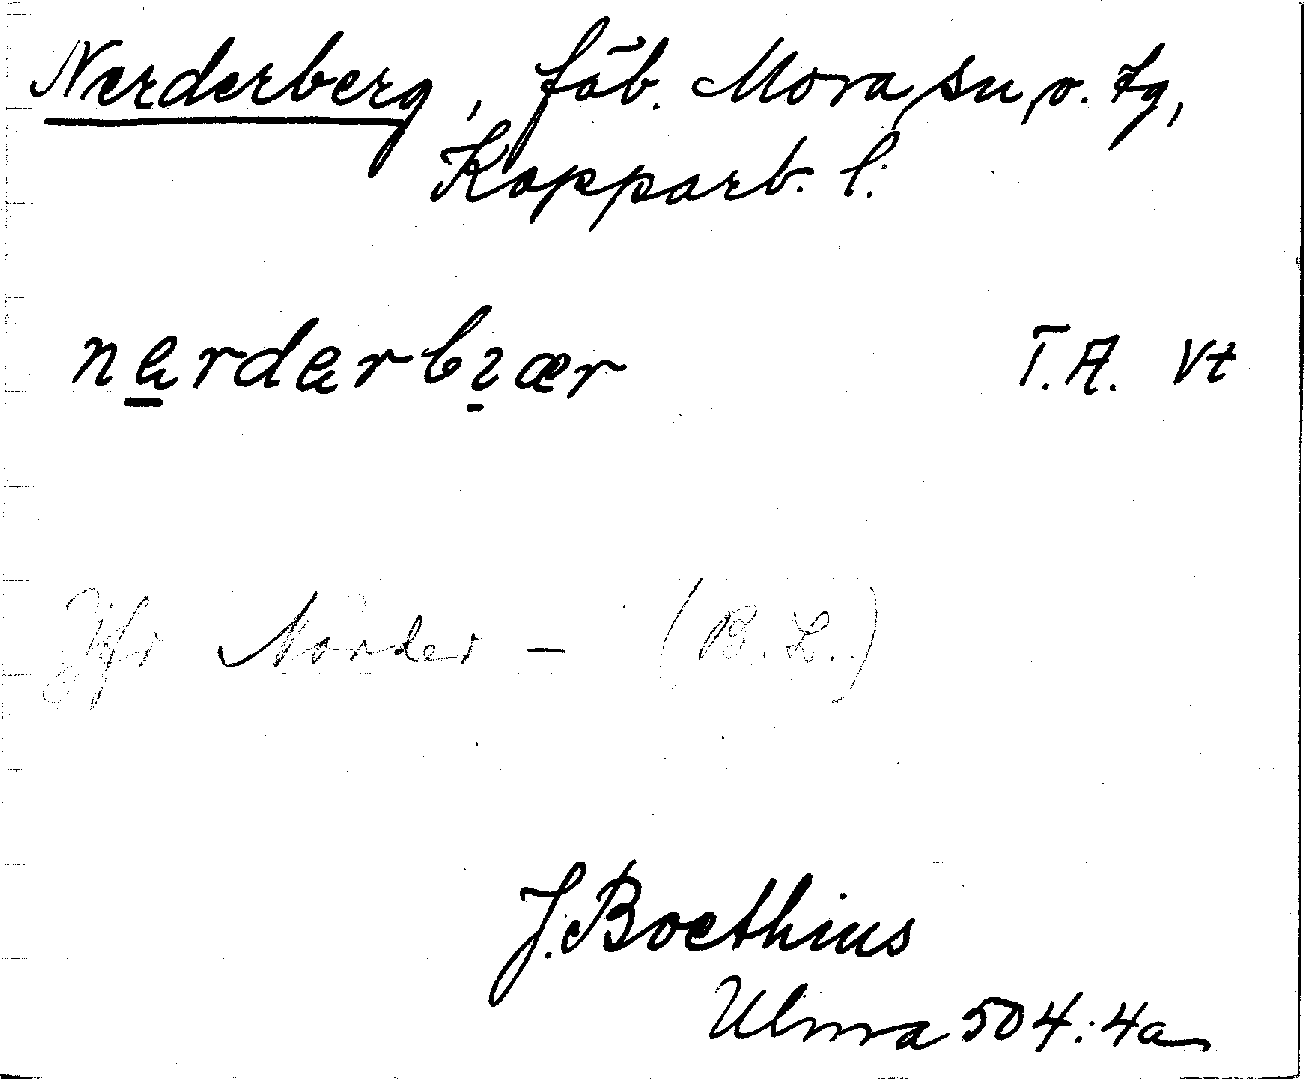 Nærderberg, fäb. Mora sn, o. tg,
Kopparb. l.
nærdærbᴉær T.A. Vt
Jfr Nörder – (B.L.)
J. Boëthius
Ulma 504:4a